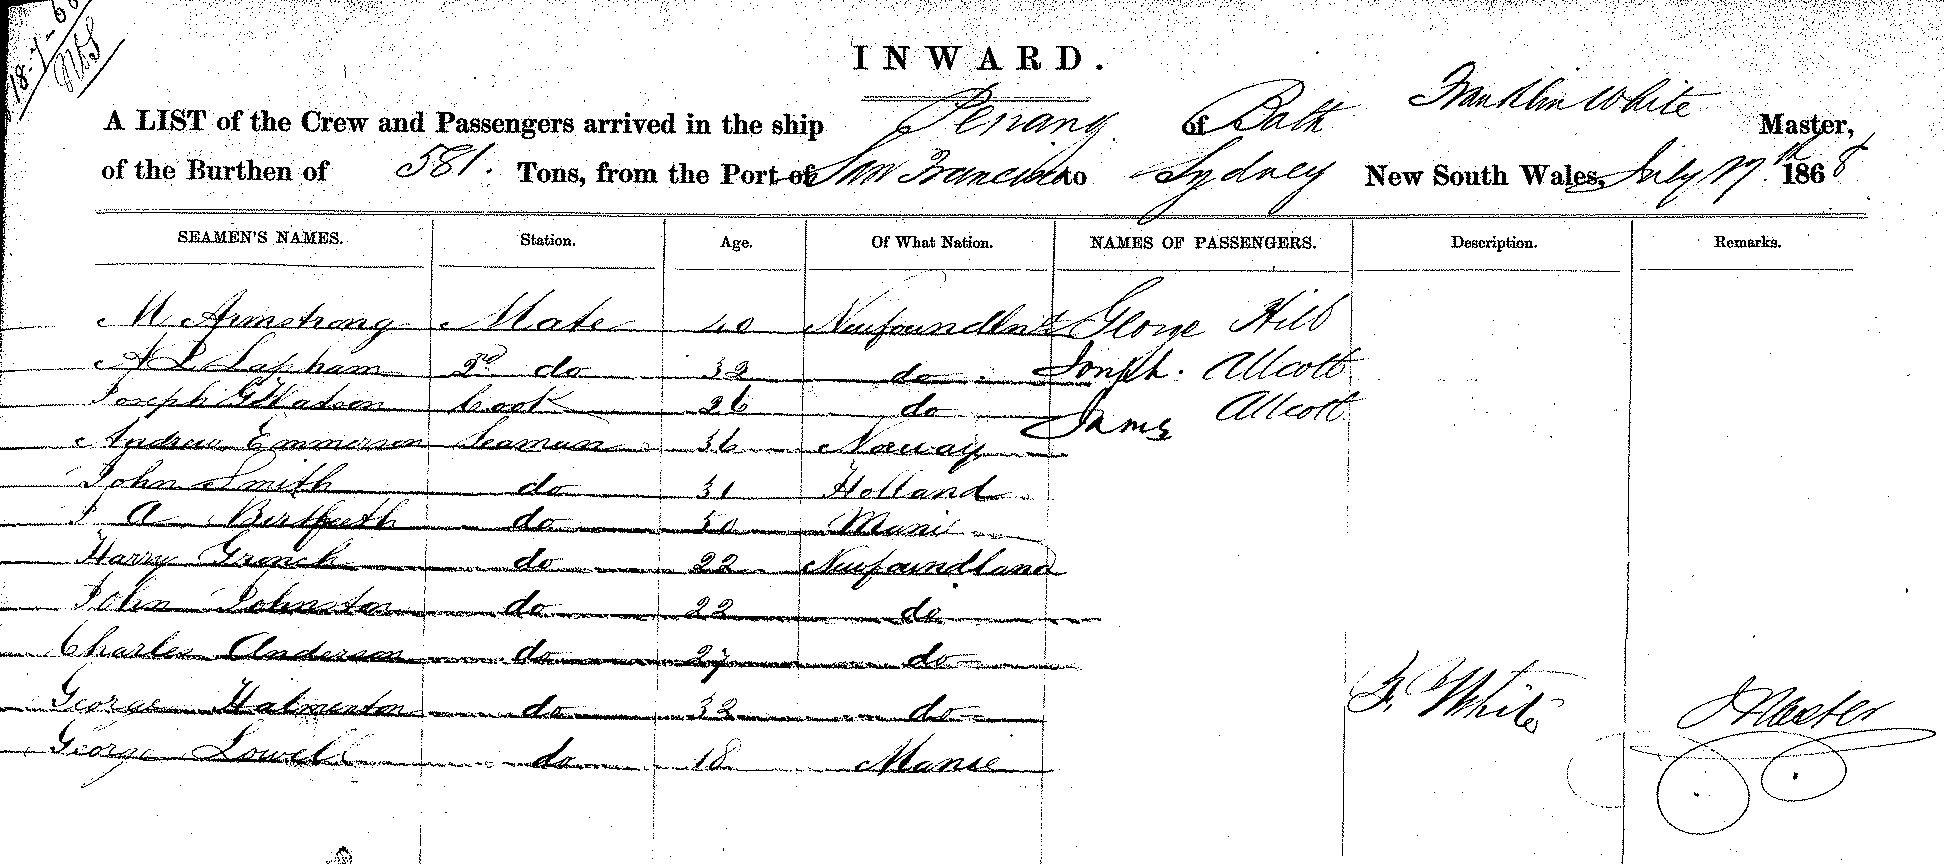 18-7-68
INWARD.
A LIST of the Crew and Passengers arrived in the ship Penang of Bath Franklin White Master,
of the Burthen of 581. Tons, from the Port of San Francisco to Sydney New South Wales, July 17th 1868
SEAMEN'S NAMES. Station. Age. Of What Nation. NAMES OF PASSENGERS. Description. Remarks.
M Armstrong Mate 40 Newfoundland George Hill
A L Lapham 2nd do 32 do Joseph. Allcott
Joseph Watson Cook 26 do James Allcott
Andrew Emmerson Seaman 36 Norway
John Smith do 31 Holland
A do 30
Harry do 22 Newfoundland
John Johnston do 22 do
Charles Anderson do 27 do
George do 32 do
George Lowell do 18 Manie
F. White Master